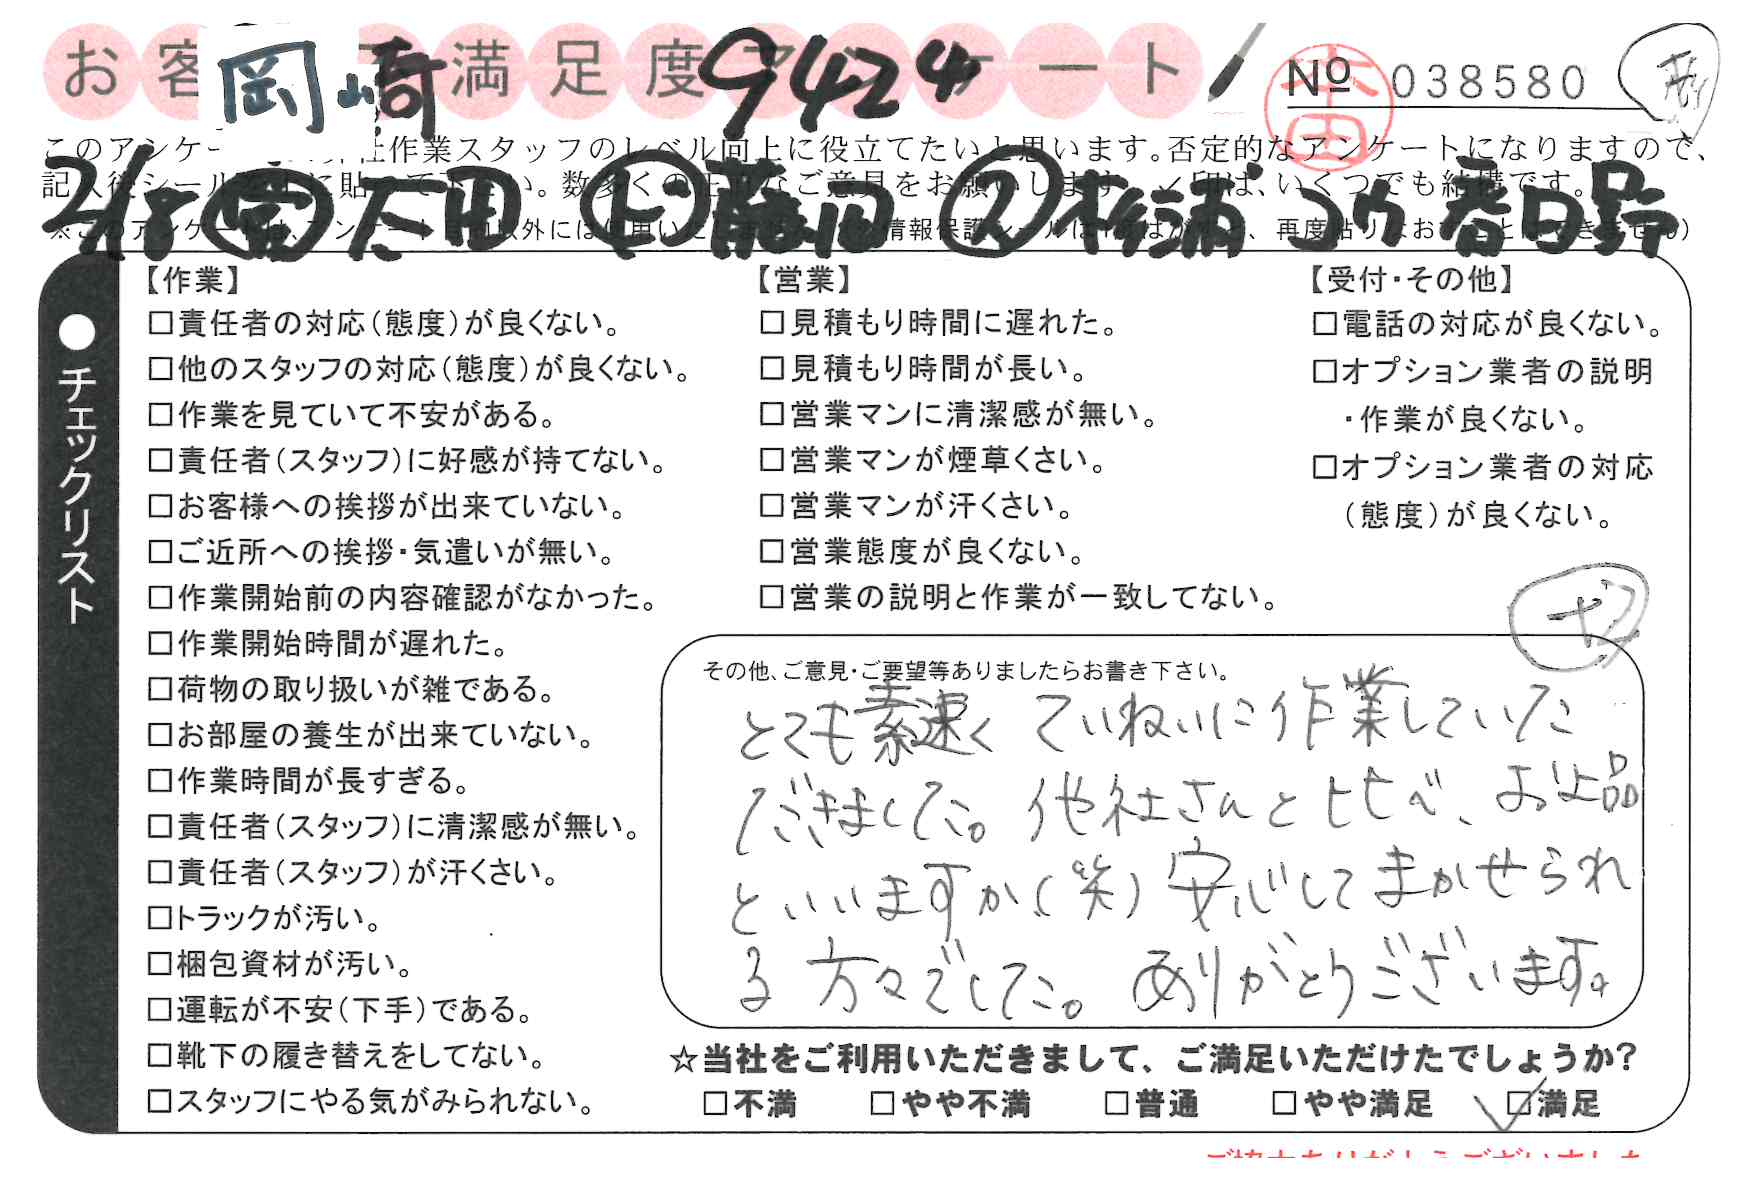 お客 満足度アンケート
岡崎 9424
№ 038580
このアンケー 作業スタッフのレベル向上に役立てたいと思います。否定的なアンケートになりますので、
記入後シール に貼って下さい。数多くの ご意見をお願いします。✓印は、いくつでも結構です。
2/8 営 石田 ヒ 藤田 ス 杉浦 コウ 春日野
【作業】
□責任者の対応(態度)が良くない。
□他のスタッフの対応(態度)が良くない。
□作業を見ていて不安がある。
□責任者(スタッフ)に好感が持てない。
□お客様への挨拶が出来ていない。
□ご近所への挨拶・気遣いが無い。
□作業開始前の内容確認がなかった。
□作業開始時間が遅れた。
□荷物の取り扱いが雑である。
□お部屋の養生が出来ていない。
□作業時間が長すぎる。
□責任者(スタッフ)に清潔感が無い。
□責任者(スタッフ)が汗くさい。
□トラックが汚い。
□梱包資材が汚い。
□運転が不安(下手)である。
□靴下の履き替えをしてない。
□スタッフにやる気がみられない。
【営業】
□見積もり時間に遅れた。
□見積もり時間が長い。
□営業マンに清潔感が無い。
□営業マンが煙草くさい。
□営業マンが汗くさい。
□営業態度が良くない。
□営業の説明と作業が一致してない。
【受付・その他】
□電話の対応が良くない。
□オプション業者の説明
・作業が良くない。
□オプション業者の対応
(態度)が良くない。
●チェックリスト
+2
その他、ご意見・ご要望等ありましたらお書き下さい。
とても素速く ていねいに作業していた
だきました。他社さんと比べ、お上品
といいますか(笑)安心してまかせられ
る 方々でした。ありがとうございます。
☆当社をご利用いただきまして、ご満足いただけたでしょうか?
□不満 □やや不満 □普通 □やや満足 ☑満足